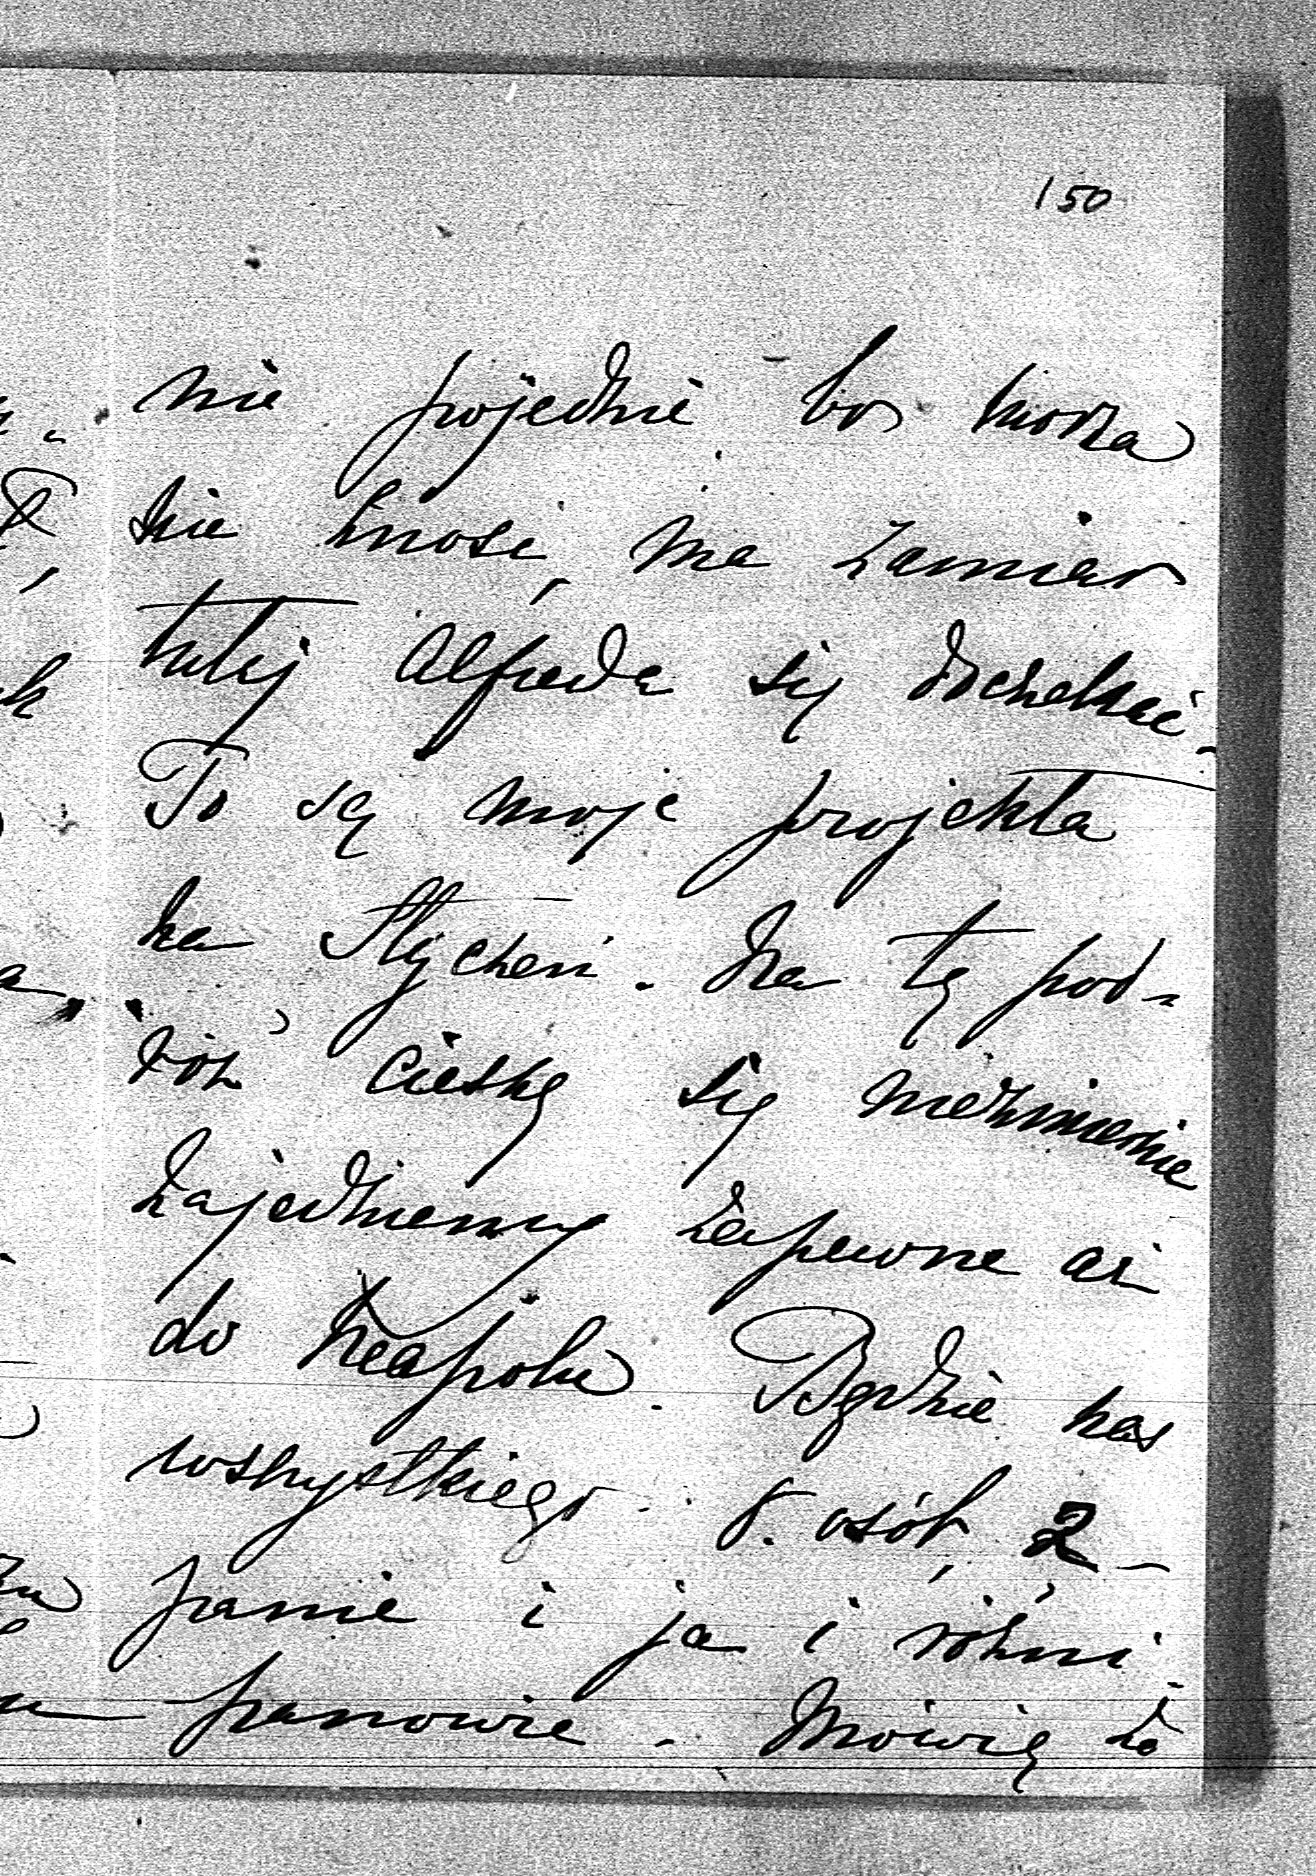 150
nie pojedzie bo morza
nie znosi, ma zamiar
tutej Alfreda się doczekać.
To są moje projekta
na Styczeń. Na tę pod-
róż cieszę się niezmiernie
Zajedziemy zapewne aż
do Neapolu. Będzie nas
wszystkiego 8. osób, 2
panie i ja i różni
panowie. Mówią że